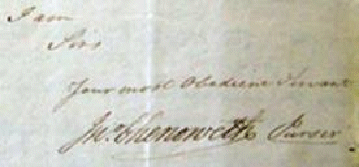 I am
Sirs
Your most Obedient Servant
Jno. Chenoweth Purser